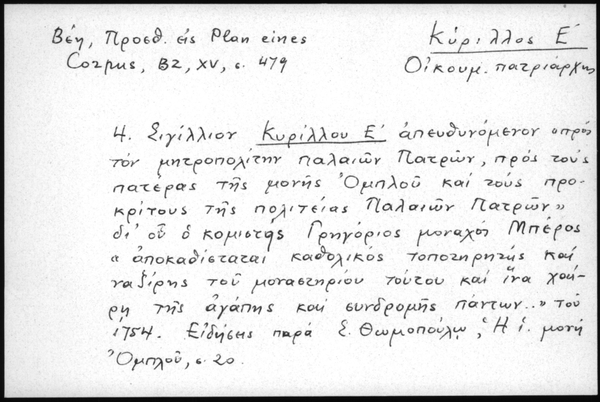 Βέη, Προσθ. εἰς Plan eines
Corpus, BZ, XV, σ. 479
Κύριλλος Ε΄
Οἰκουμ. πατριάρχης
4. Σιγίλλιον Κυρίλλου Ε΄ ἀπευθυνόμενον «πρὸς
τὸν μητροπολίτην Παλαιῶν Πατρῶν, πρὸς τοὺς
πατέρας τῆς μονῆς Ὀμπλοῦ καὶ τοὺς προ-
κρίτους τῆς πολιτείας Παλαιῶν Πατρῶν»
δι' οὗ ὁ κομιστὴς Γρηγόριος μοναχὸς Μπέρος
«ἀποκαθίσταται καθολικὸς τοποτηρητὴς καὶ
ναζίρης τοῦ μοναστηρίου τούτου καὶ ἵνα χαί-
ρῃ τῆς ἀγάπης καὶ συνδρομῆς πάντων..» τοῦ
1754. Εἰδήσεις παρὰ Σ. Θωμοπούλῳ, Ἡ ἱ. μονὴ
Ὀμπλοῦ, σ. 20.